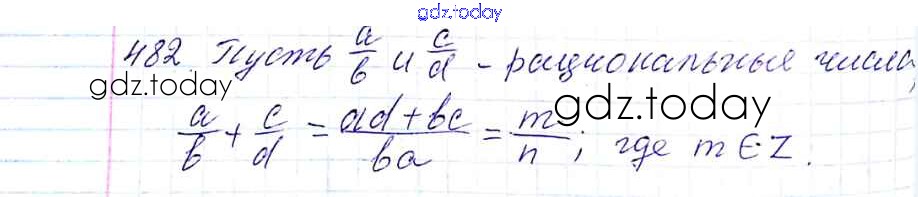 gdz.today
482 Пусть a/b и c/d - рациональные числа,
gdz.today
gdz.today
a/b + c/d = ad+bc/ba = m/n ; где m ∈ Z.